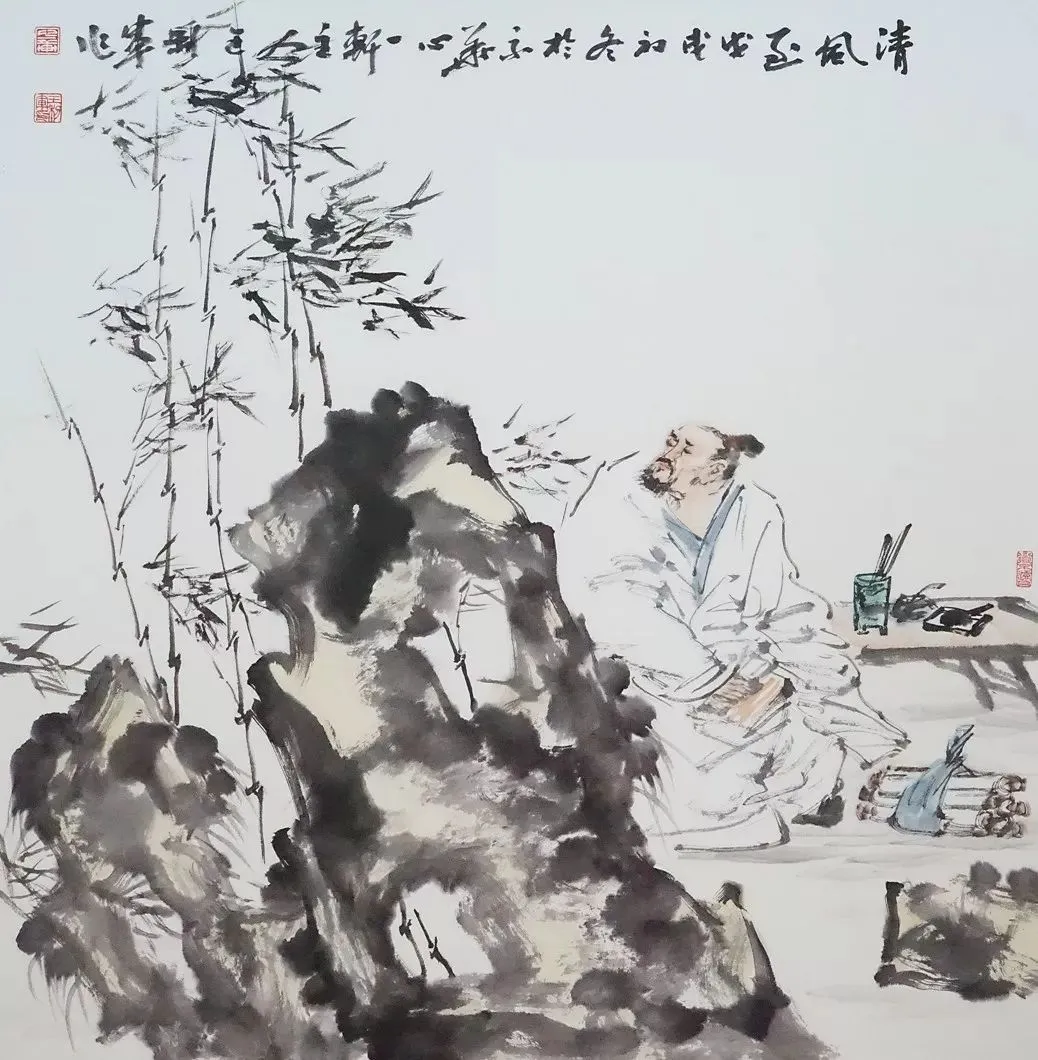 清風至戊戌初冬於京華心一軒主人王軍作